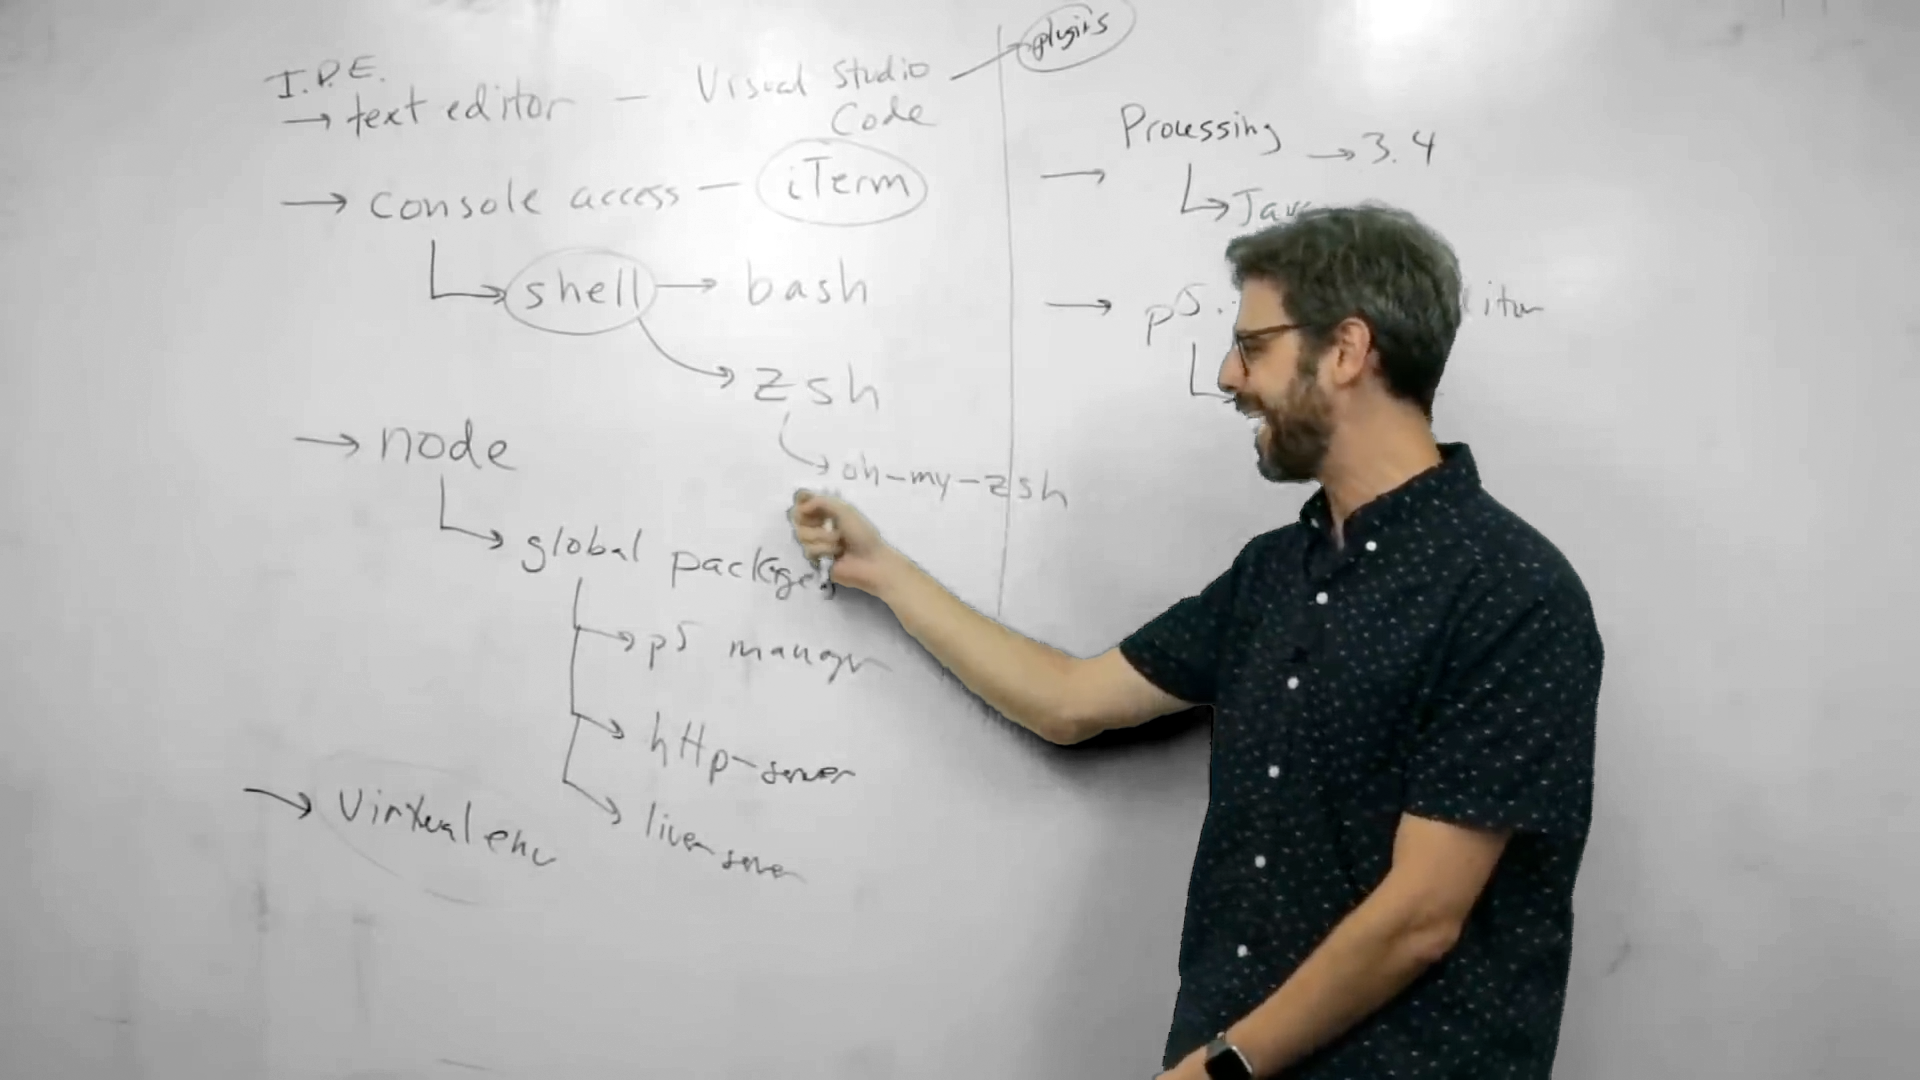 I.D.E.
→ text editor — Visual Studio Code
plugins
→ console access — iTerm
shell → bash
→ zsh
→ oh-my-zsh
→ node
→ global packages
→ p5 manager
→ http-server
→ live server
→ Virtualenv
→ Processing → 3.4
→ p5.